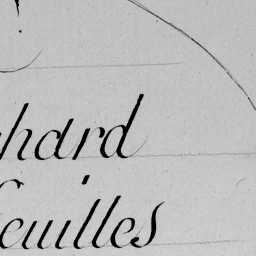 hard
feuilles